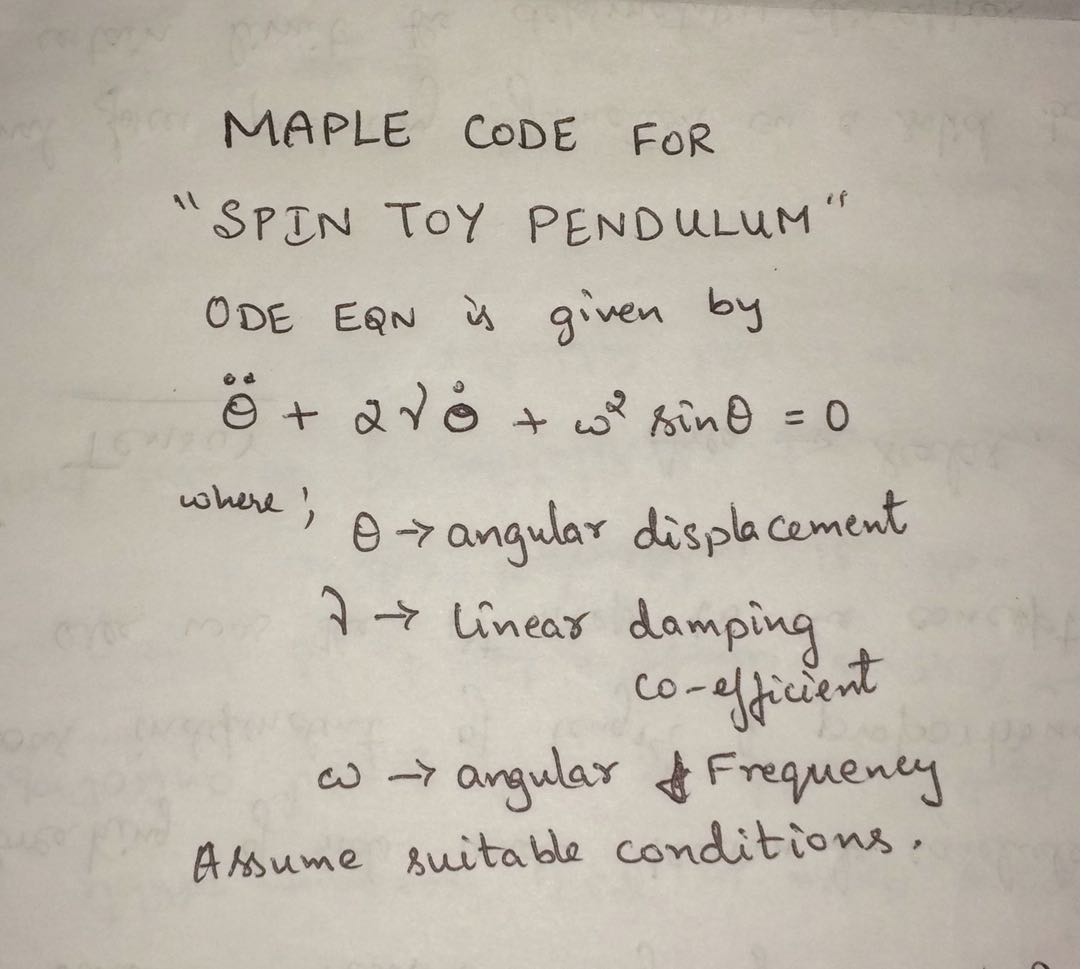 MAPLE CODE FOR
"SPIN TOY PENDULUM"
ODE EQN is given by
θ̈ + 2γθ̇ + ω² sinθ = 0
where; θ → angular displacement
γ → linear damping
co-efficient
ω → angular Frequency
Assume suitable conditions.